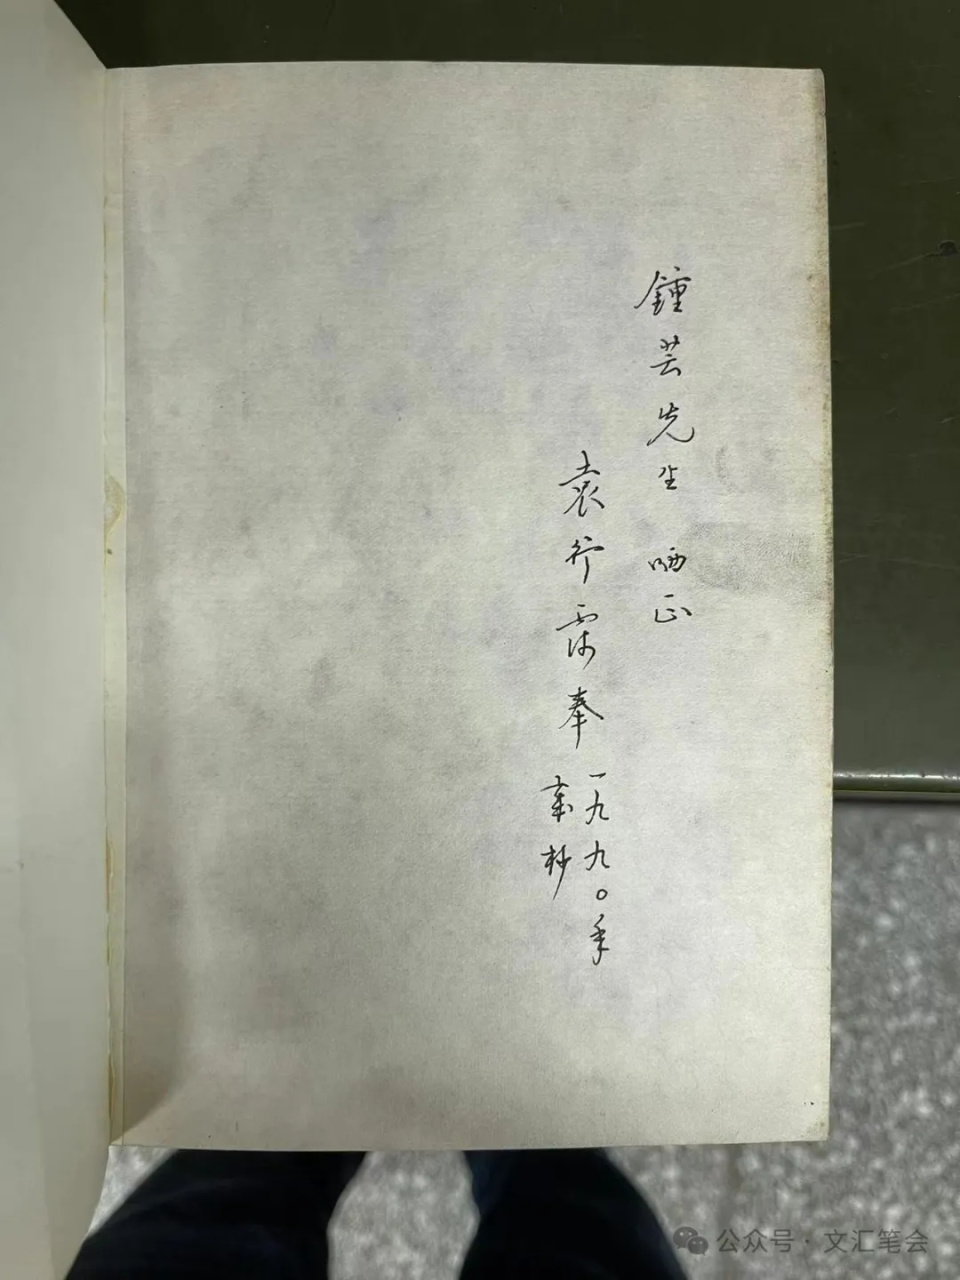 鍾芸先生 哂正
袁行霈奉
一九九〇年
歲杪
公众号 · 文汇笔会